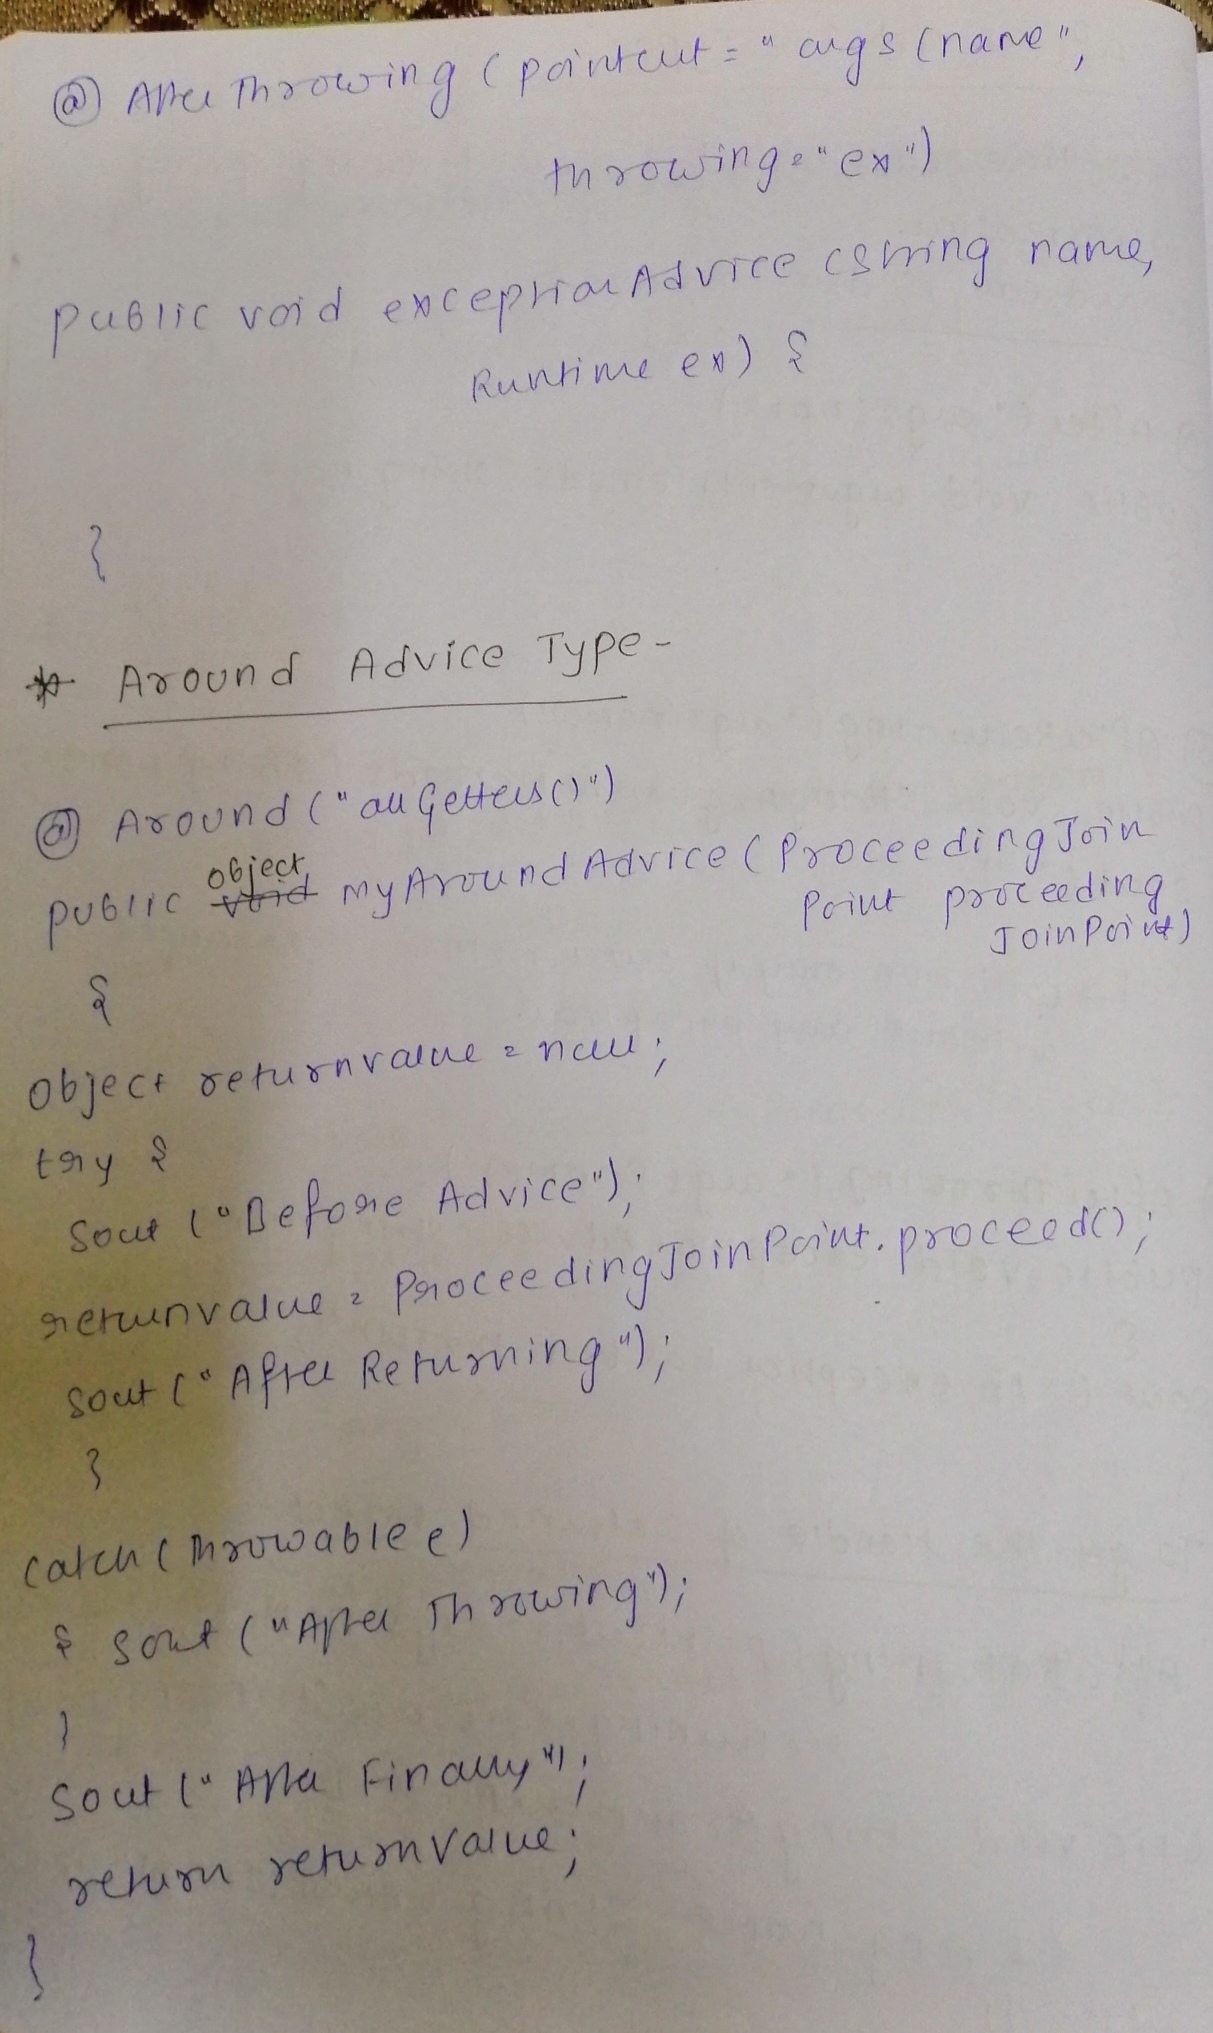 @ After Throwing (pointcut = "args (name",
throwing = "ex")
public void exceptionAdvice (String name,
Runtime ex) {
}
* Around Advice Type -
@ Around ("allGetters()")
public void object myAroundAdvice (ProceedingJoin
Point proceeding
JoinPoint)
{
Object returnvalue = null;
try {
Sout ("Before Advice");
returnvalue = ProceedingJoinPoint.proceed();
Sout ("After Returning");
}
catch (Throwable e)
{ Sout ("After Throwing");
}
Sout ("After Finally");
return returnvalue;
}